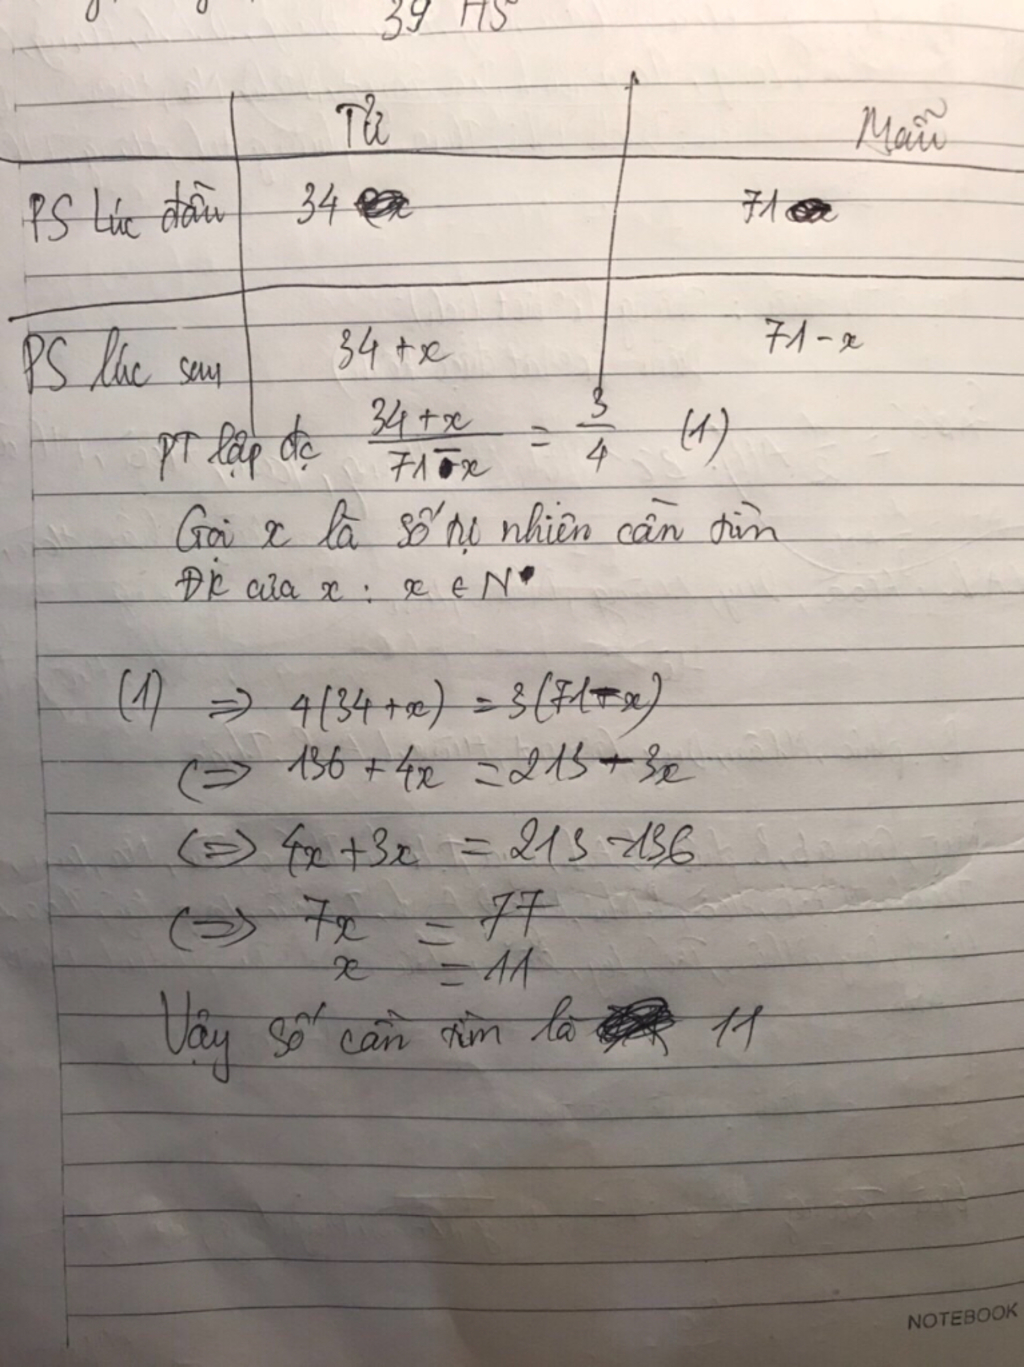 39 HS
Tử Mẫu
PS Lúc đầu 34 71
PS lúc sau 34 + x 71 - x
PT lập đc (34 + x)/(71 - x) = 3/4 (1)
Gọi x là số tự nhiên cần tìm
ĐK của x : x ∈ N*
(1) => 4(34 + x) = 3(71 - x)
<=> 136 + 4x = 213 - 3x
<=> 4x + 3x = 213 - 136
<=> 7x = 77
x = 11
Vậy số cần tìm là 11
NOTEBOOK